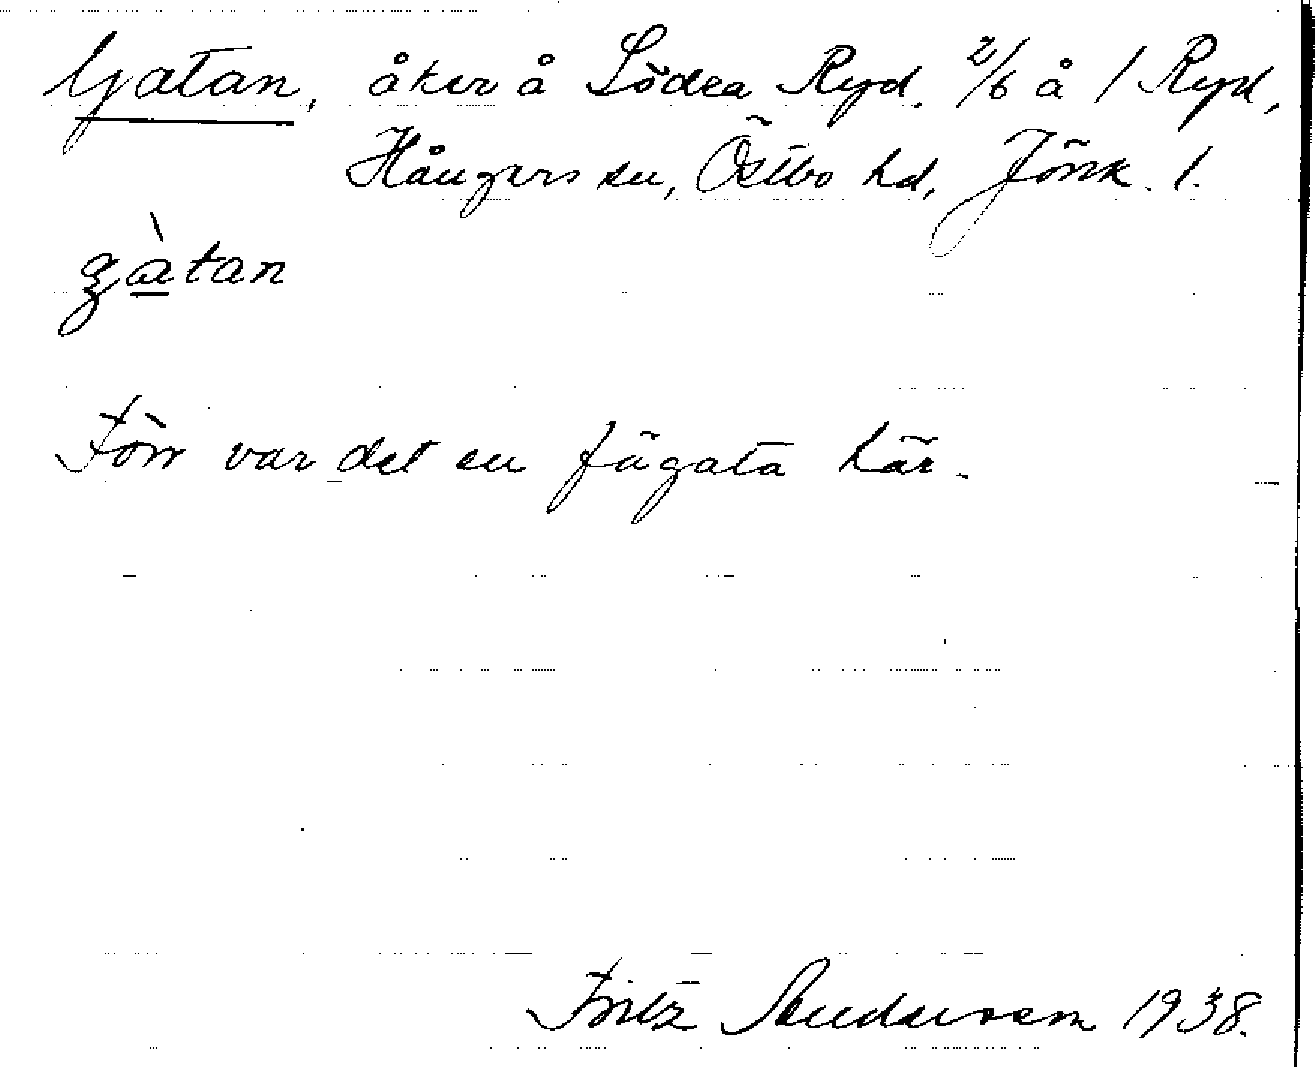 Gatan, åker å Södra Ryd. 2/6 å 1 Ryd,
Hångers sn, Östbo hd, Jönk. l.
gàtan
Förr var det en fägata här.
Fritz Andersson 1938.